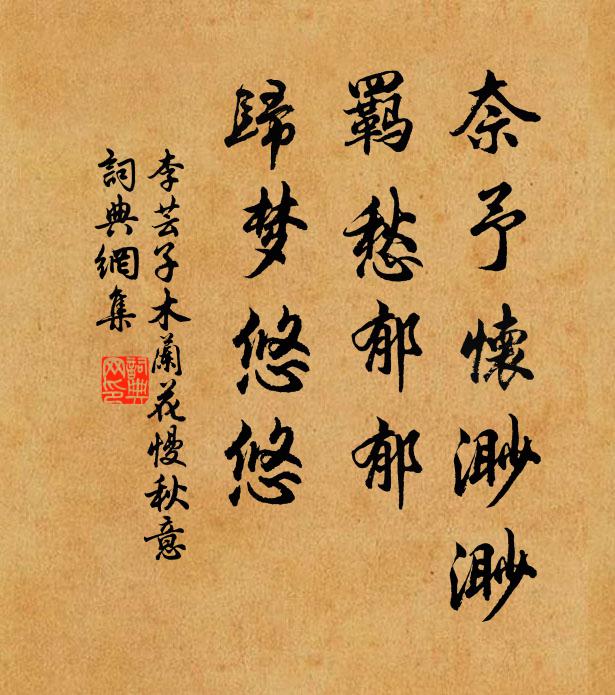 奈予懷渺渺
羈愁郁郁
歸梦悠悠
李芸子木蘭花慢秋意
詞典網集
詞典网印